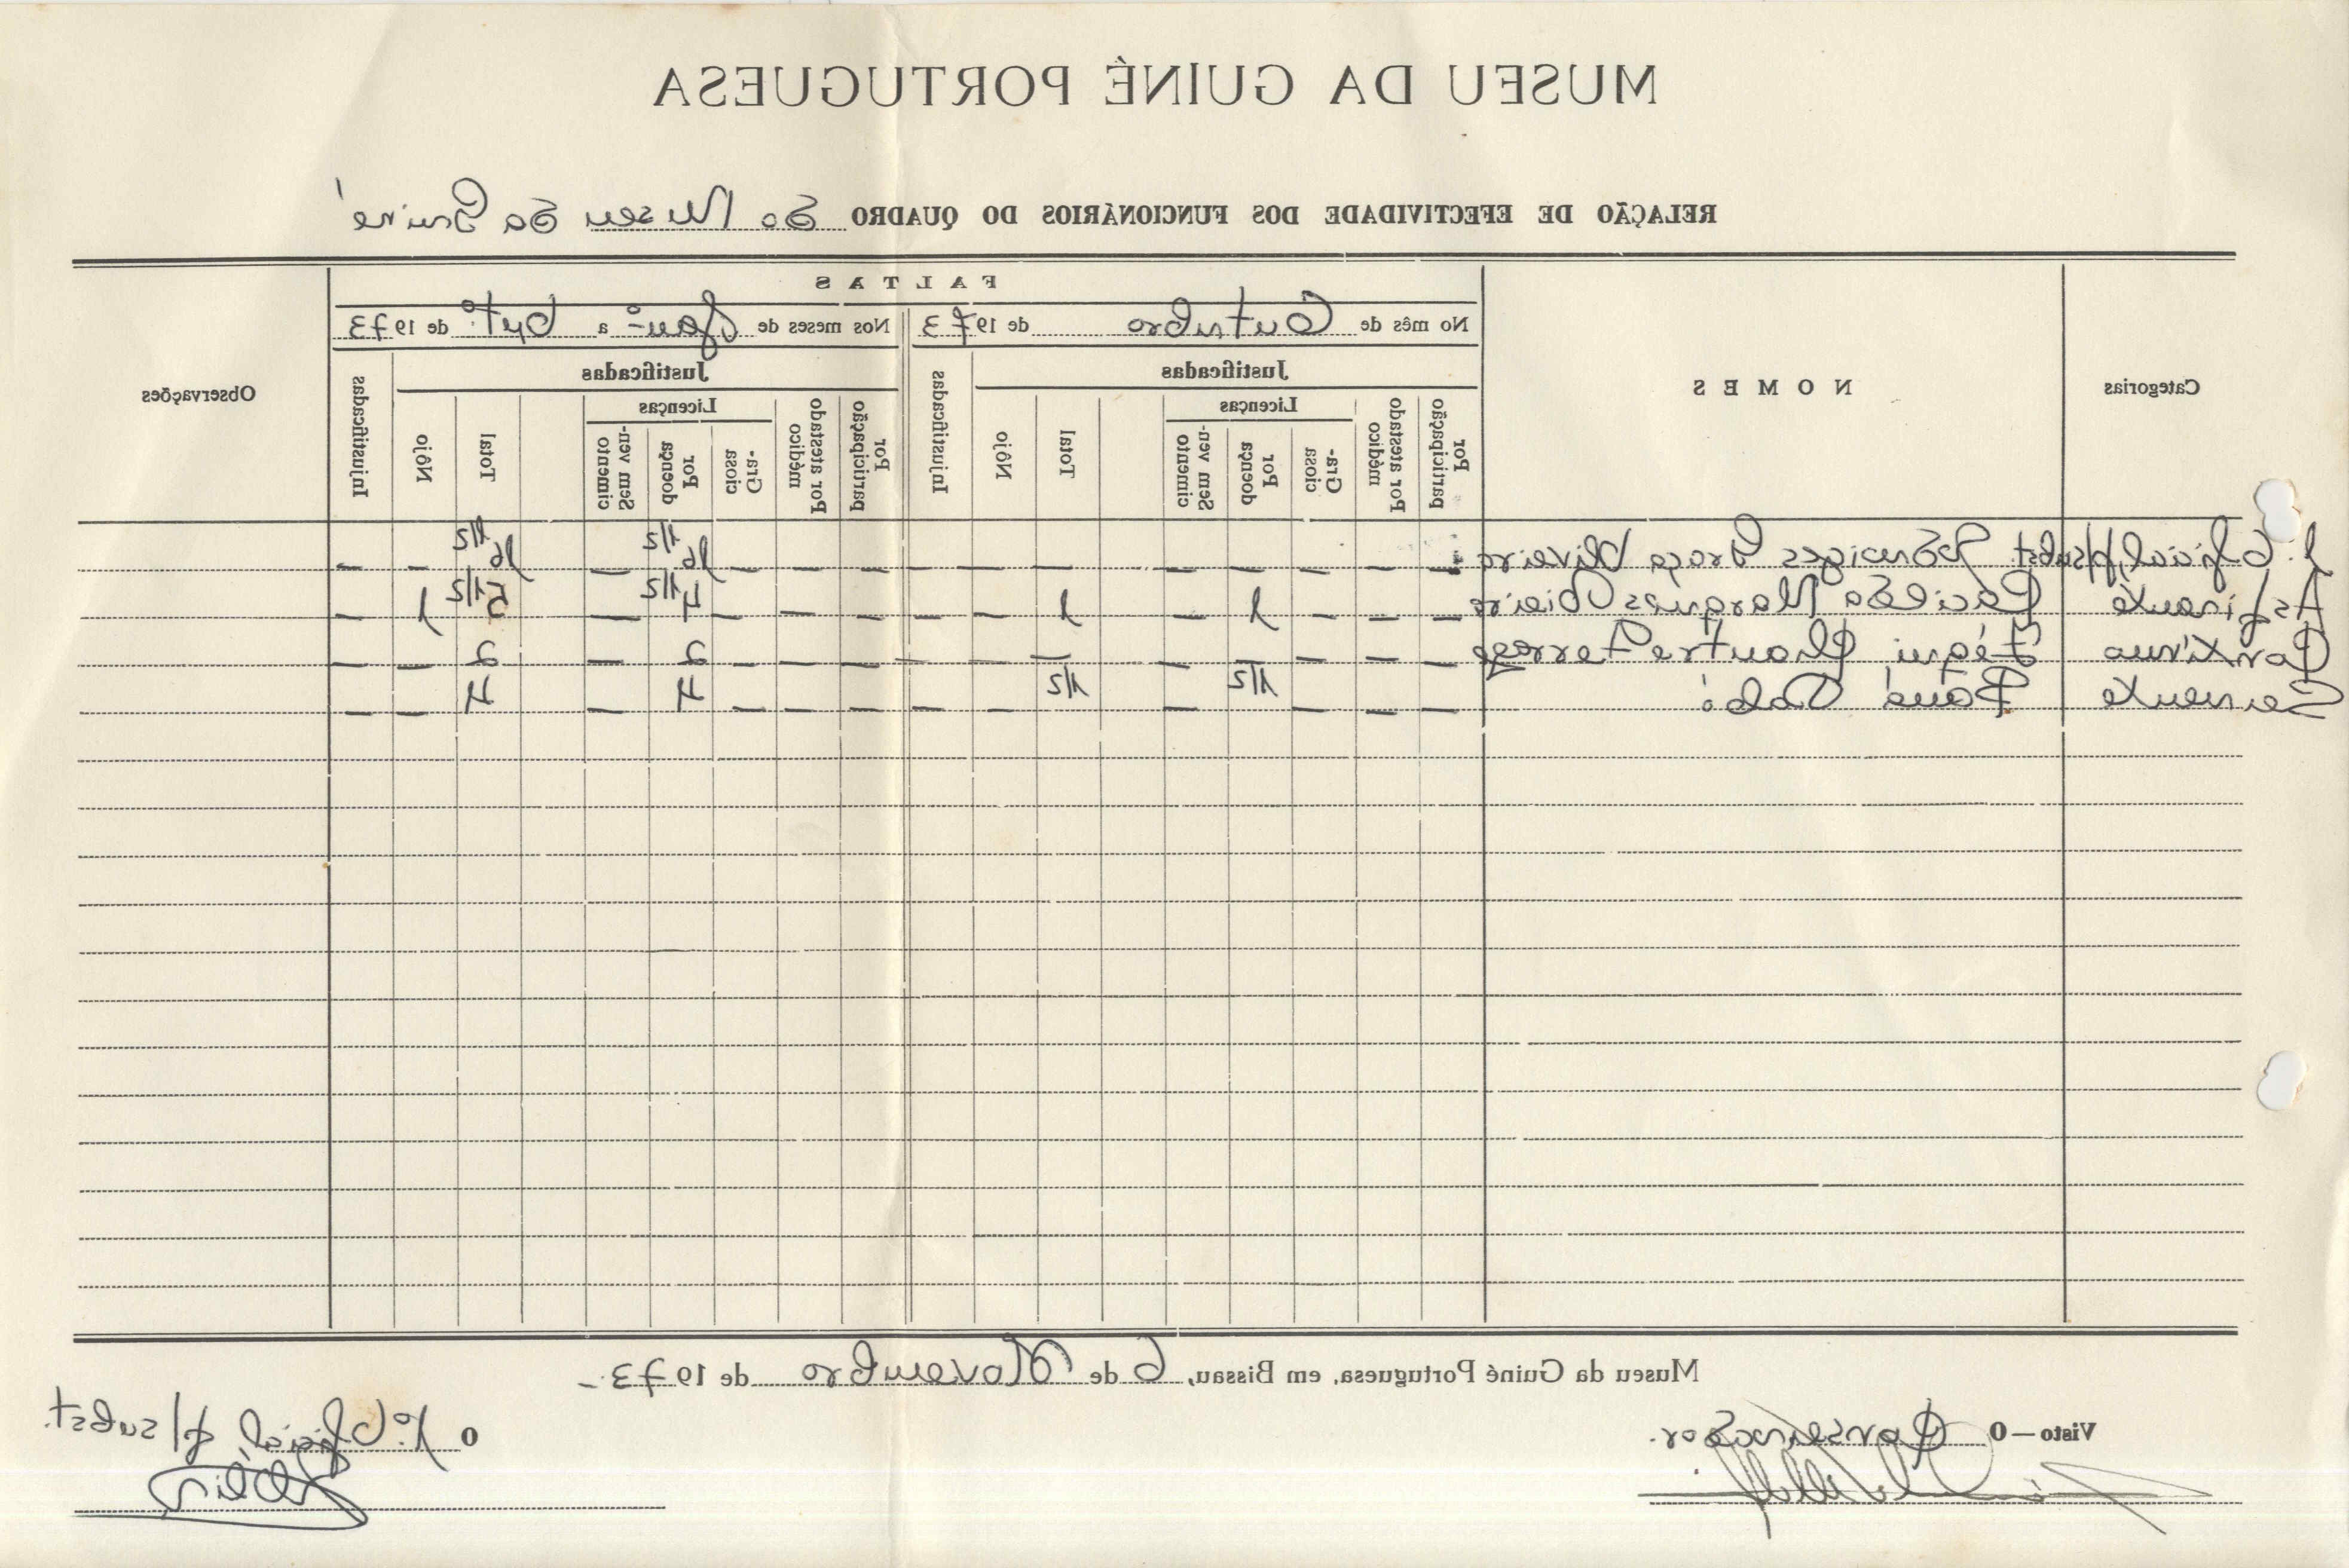 MUSEU DA GUINÉ PORTUGUESA
RELAÇÃO DE EFECTIVIDADE DOS FUNCIONÁRIOS DO QUADRO do Museu da Guiné
Categorias
NOMES
FALTAS
No mês de Outubro de 1973
Nos meses de Jan.º a Out.º de 1973
Justificadas
Por participação
Por atestado médico
Licenças
Graciosa
Por doença
Sem vencimento
Total
Nôjo
Injustificadas
Justificadas
Por participação
Por atestado médico
Licenças
Graciosa
Por doença
Sem vencimento
Total
Nôjo
Injustificadas
Observações
1.º Oficial, p/subst. Graça Oliveira — — — — — — — — — — — 16 1/2 — 16 1/2 — —
Aspirante Marques Vieira — — — 1 — 1 — — — — — 4 1/2 — 5 1/2 1 —
Contínuo — — — — — — — — — — — 2 — 2 — —
Servente — — — 1/2 — 1/2 — — — — — 4 — 4 — —
Museu da Guiné Portuguesa, em Bissau, 6 de Novembro de 1973.-
Visto — O Conservador.
O 1.º Oficial p/subst.